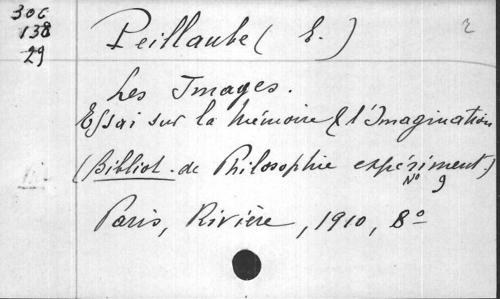 306
138
29
Peillaube (E.)
2
Les Images.
Essai sur la Mémoire & l'Imagination
(Bibliot. de Philosophie expériment.)
No 9
Paris, Rivière, 1910, 8o